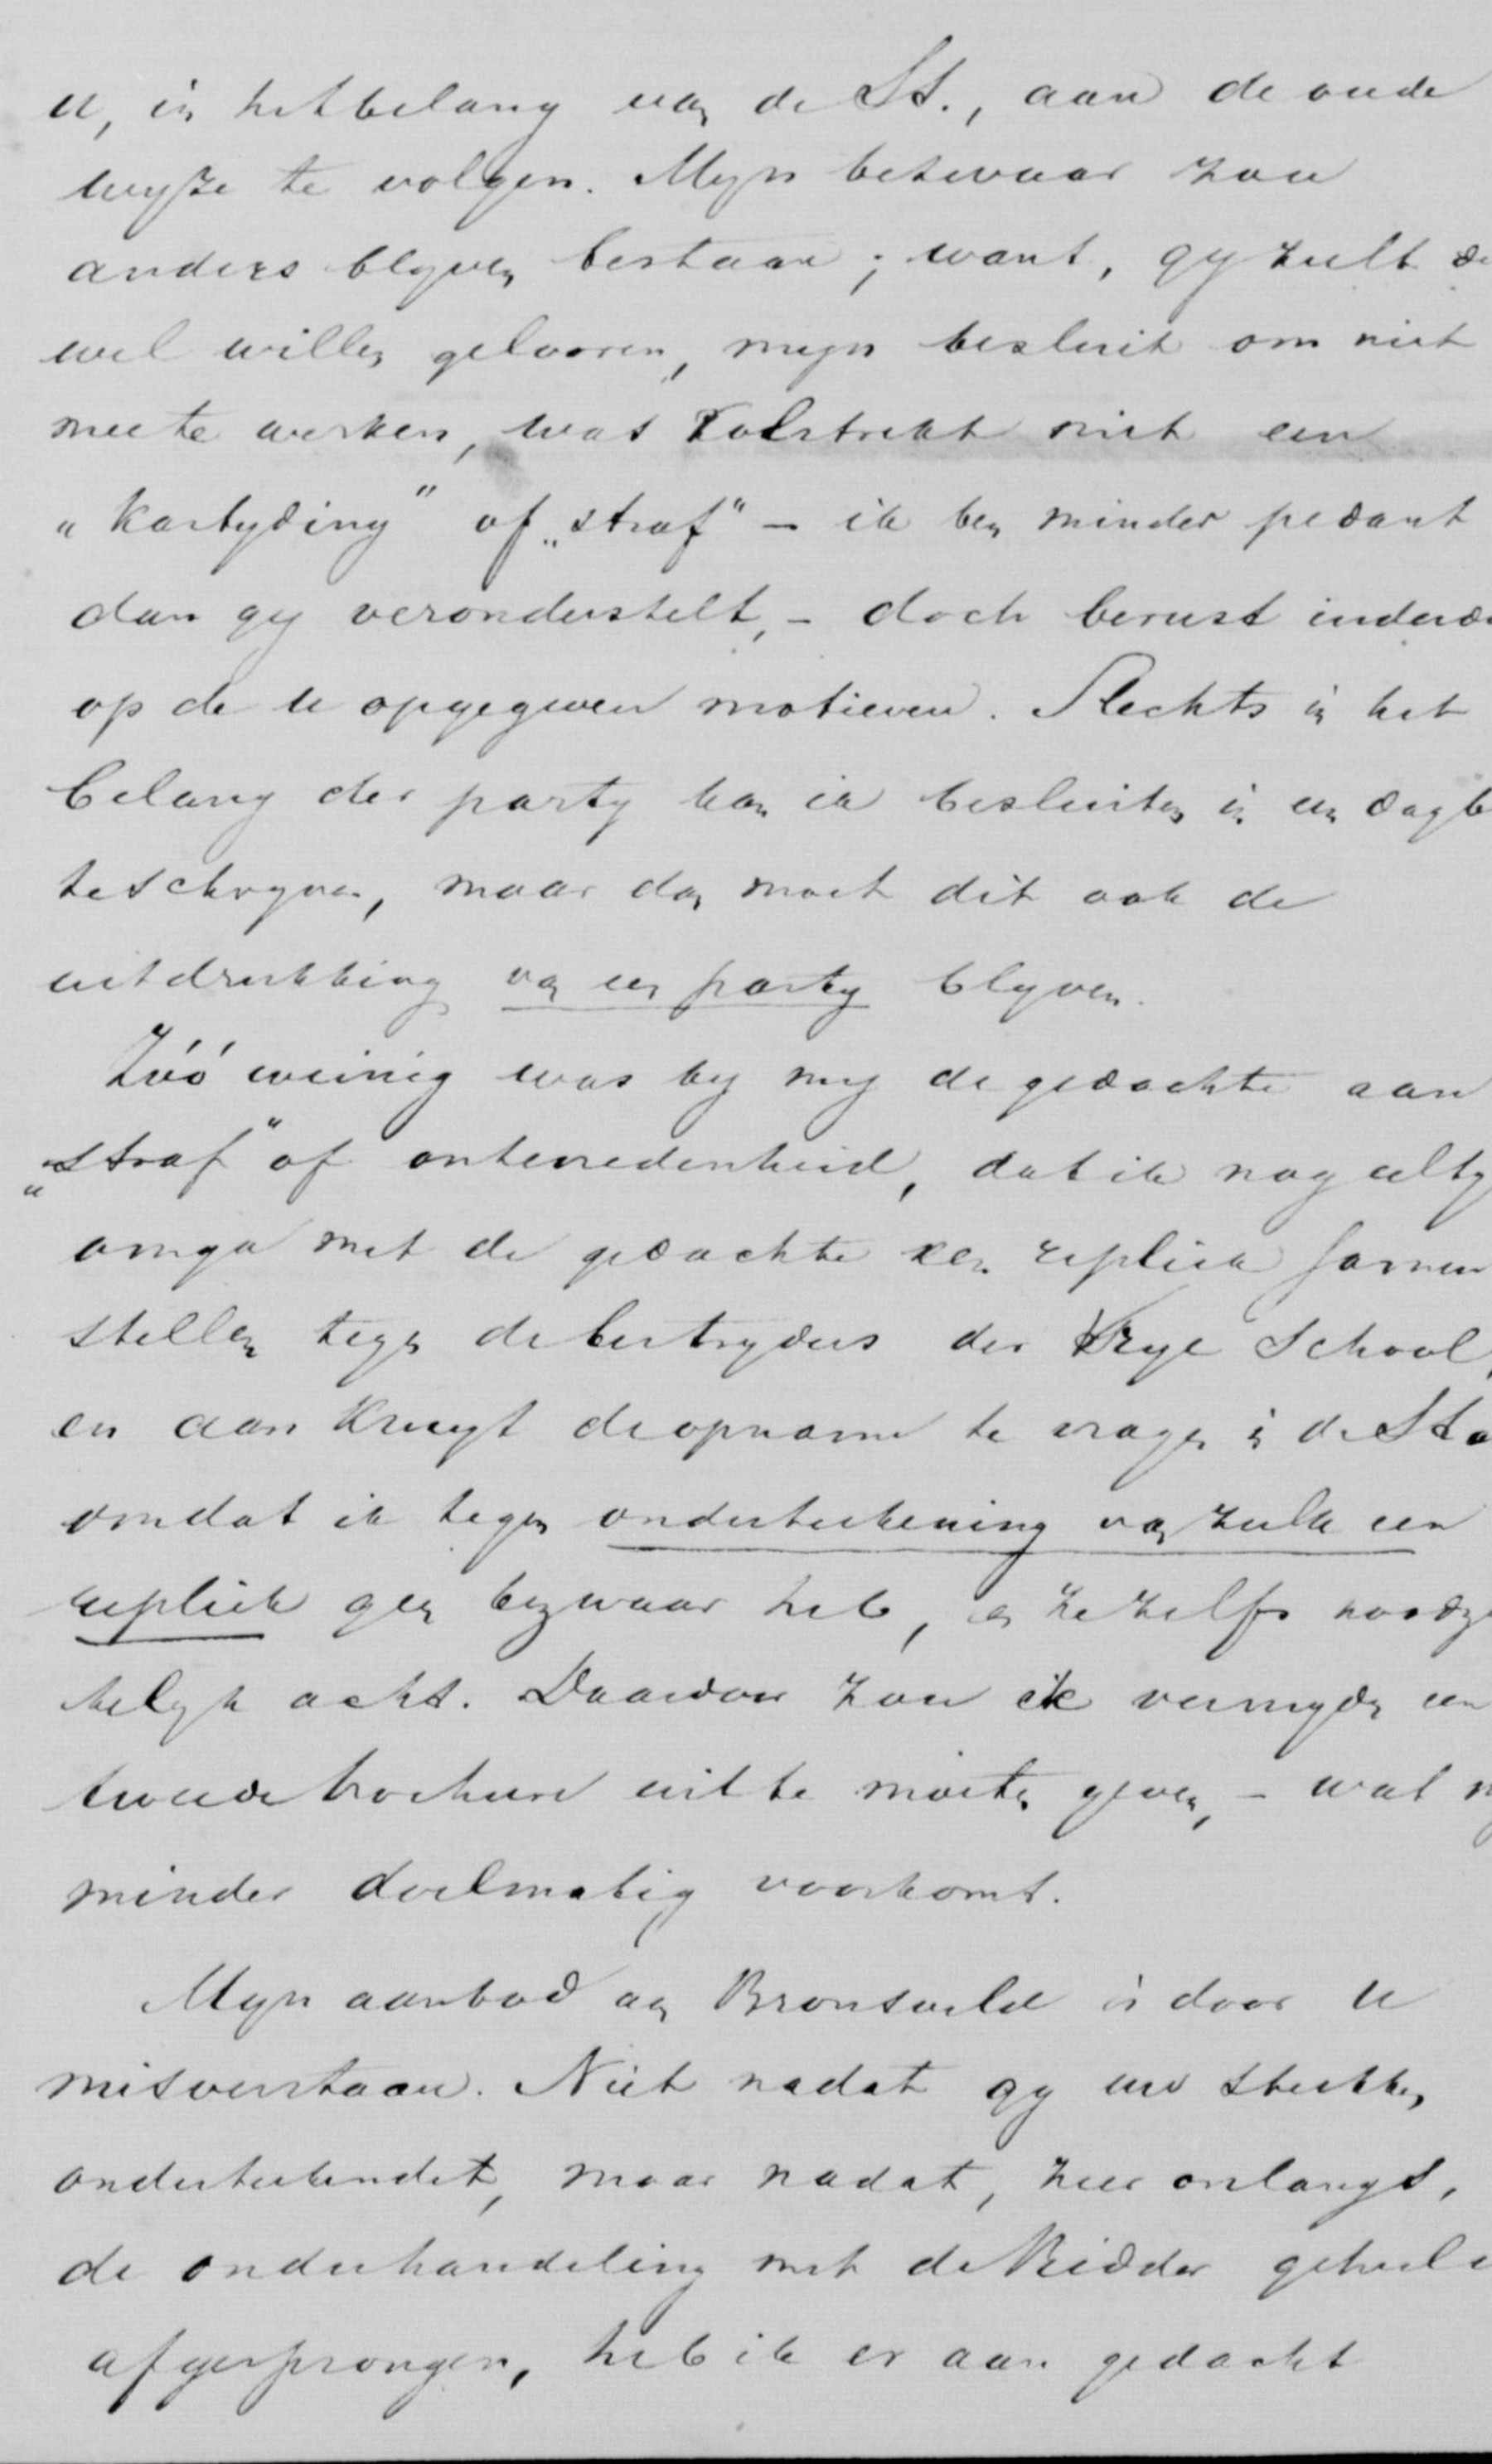 U, in het belang van de St., aan de oude
wyze te volgen. Myn bezwaar zou
anders blyven bestaan; want, gy zult
wel willen gelooven, myn besluit om niet
mee te werken, was volstrekt niet een
„kastyding” of „straf” – ik ben minder pedant
dan gy veronderstelt, – doch berust inderd
op de u opgegeven motieven. Slechts in het
belang der party kan ik besluiten in een dagb
te schryven, maar dan moet dit ook de
uitdrukking van een party blyven.
Zóó weinig was by my de gedachte aan
„straf” of ontevredenheid, dat ik nog alty
omga met de gedachte een repliek samen
stellen tegen de bestryders der Vrye School,
en aan Kruyt de opname te vragen in de Sta
omdat ik tegen onderteekening van zulk een
repliek geen bezwaar heb, en ze zelfs noodz
kelyk acht. Daardoor zou ik vermyden een
tweede brochure uit te moeten geven, – wat m
minder doelmatig voorkomt.
Myn aanbod aan Bronsveld is door U
misverstaan. Niet nadat gy uw stukken
onderteekendet, maar nadat, zeer onlangs,
de onderhandeling met de Ridder geheel
afgesprongen, heb ik er aan gedacht